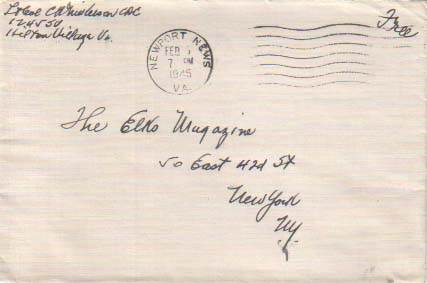 Free
NEWPORT NEWS
FEB
7 PM
1945
VA.
Hilton Village Va.
The Elks Magazine
50 East 42d St
New York
NY.